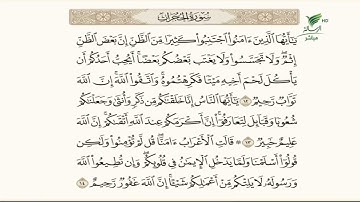 سُورَةُ الحُجُرَاتِ
HD
مباشر
يَٰٓأَيُّهَا ٱلَّذِينَ ءَامَنُوا۟ ٱجْتَنِبُوا۟ كَثِيرًا مِّنَ ٱلظَّنِّ إِنَّ بَعْضَ ٱلظَّنِّ
إِثْمٌ ۖ وَلَا تَجَسَّسُوا۟ وَلَا يَغْتَب بَّعْضُكُم بَعْضًا ۚ أَيُحِبُّ أَحَدُكُمْ أَن
يَأْكُلَ لَحْمَ أَخِيهِ مَيْتًا فَكَرِهْتُمُوهُ ۚ وَٱتَّقُوا۟ ٱللَّهَ ۚ إِنَّ ٱللَّهَ
تَوَّابٌ رَّحِيمٌ ١٢ يَٰٓأَيُّهَا ٱلنَّاسُ إِنَّا خَلَقْنَٰكُم مِّن ذَكَرٍ وَأُنثَىٰ وَجَعَلْنَٰكُمْ
شُعُوبًا وَقَبَآئِلَ لِتَعَارَفُوٓا۟ ۚ إِنَّ أَكْرَمَكُمْ عِندَ ٱللَّهِ أَتْقَىٰكُمْ ۚ إِنَّ ٱللَّهَ
عَلِيمٌ خَبِيرٌ ١٣ ۞ قَالَتِ ٱلْأَعْرَابُ ءَامَنَّا ۖ قُل لَّمْ تُؤْمِنُوا۟ وَلَٰكِن
قُولُوٓا۟ أَسْلَمْنَا وَلَمَّا يَدْخُلِ ٱلْإِيمَٰنُ فِى قُلُوبِكُمْ ۖ وَإِن تُطِيعُوا۟ ٱللَّهَ
وَرَسُولَهُۥ لَا يَلِتْكُم مِّنْ أَعْمَٰلِكُمْ شَيْـًٔا ۚ إِنَّ ٱللَّهَ غَفُورٌ رَّحِيمٌ ١٤